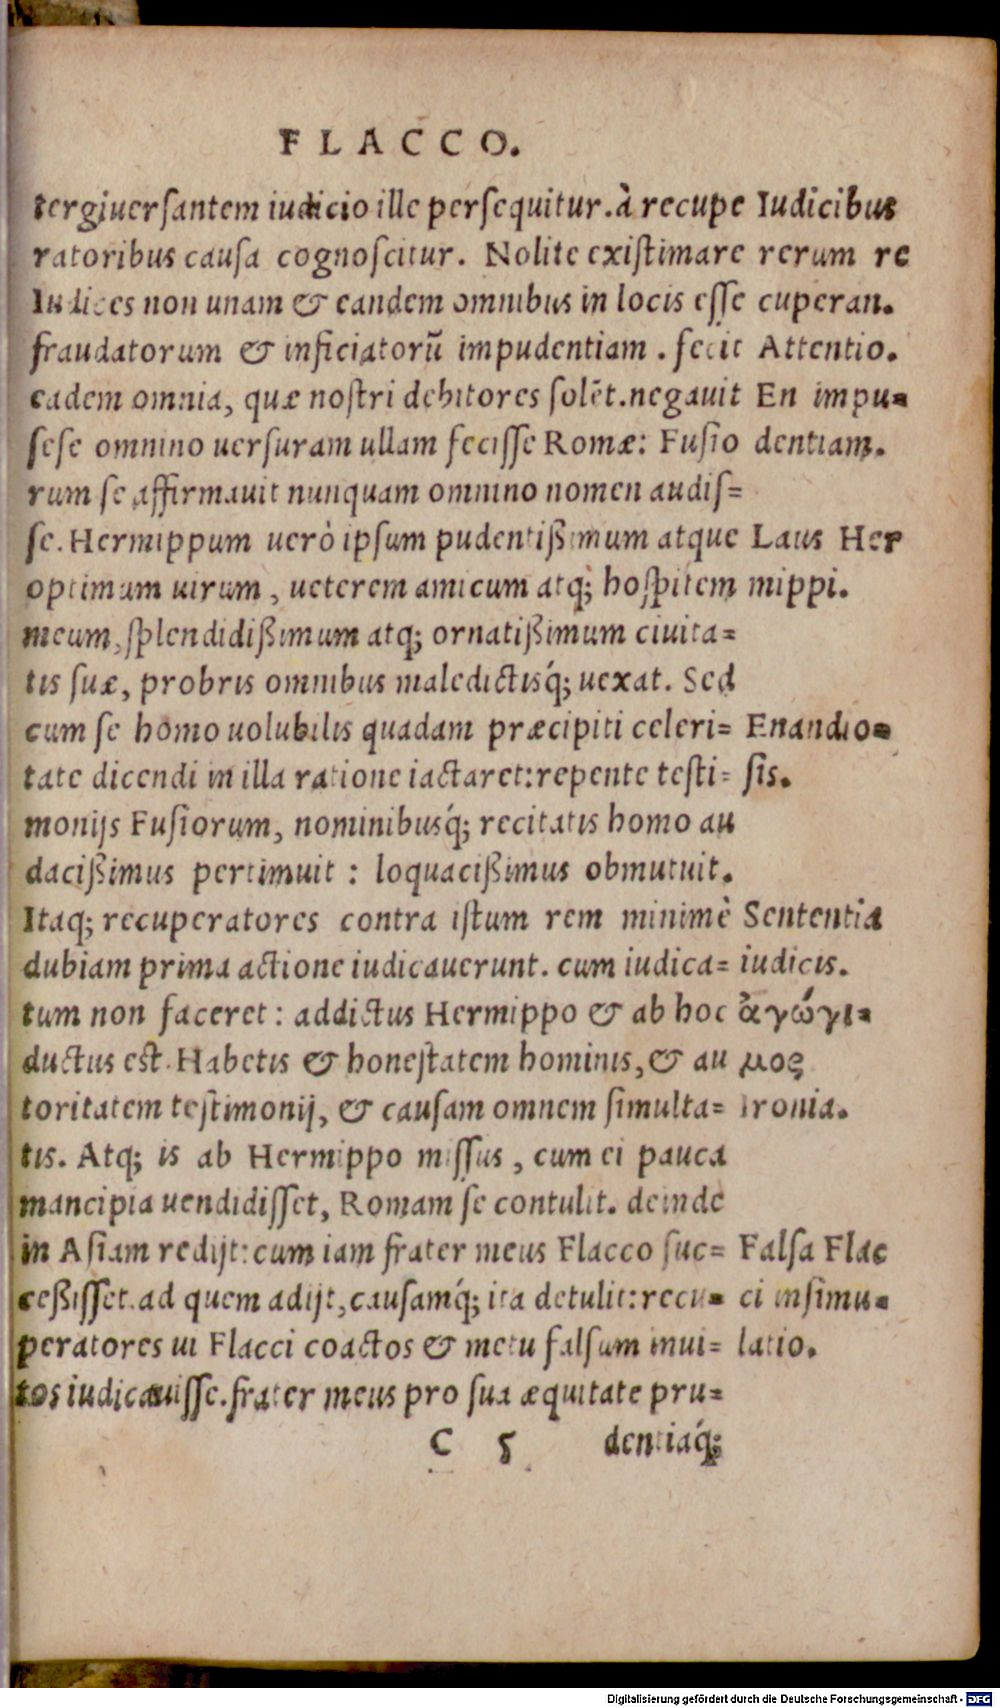 FLACCO.
tergiuersantem iudicio ille persequitur. à recupe
ratoribus causa cognoscitur. Nolite existimare
Iudices non unam & eandem omnibus in locis esse
fraudatorum & inficiatorũ impudentiam. fecit
eadem omnia, quæ nostri debitores solẽt. negauit
sese omnino uersuram ullam fecisse Romæ: Fusio
rum se affirmauit nunquam omnino nomen audis=
se. Hermippum uerò ipsum pudentißimum atque
optimum uirum, ueterem amicum atq; hospitem
meum, splendidißimum atq; ornatißimum ciuita=
tis suæ, probris omnibus maledictisq́; uexat. Sed
cum se homo uolubilis quadam præcipiti celeri=
tate dicendi in illa ratione iactaret: repente testi=
monijs Fusiorum, nominibusq́; recitatis homo au
dacißimus pertimuit: loquacißimus obmutuit.
Itaq; recuperatores contra istum rem minimè
dubiam prima actione iudicauerunt. cum iudica=
tum non faceret: addictus Hermippo & ab hoc
ductus est. Habetis & honestatem hominis, & au
toritatem testimonij, & causam omnem simulta=
tis. Atq; is ab Hermippo missus, cum ei pauca
mancipia uendidisset, Romam se contulit. deinde
in Asiam redijt: cum iam frater meus Flacco suc=
ceßisset. ad quem adijt, causamq́; ita detulit: recu=
peratores ui Flacci coactos & metu falsum inui=
tos iudicauisse. frater meus pro sua æquitate pru=
C 5 dentiaq́;
Iudicibus
rerum re
cuperan.
Attentio.
En impu=
dentiam.
Laus Her
mippi.
Enandio=
sis.
Sententia
iudicis.
ἀγώγι=
μος
Ironia.
Falsa Flac
ci insimu=
latio.
Digitalisierung gefördert durch die Deutsche Forschungsgemeinschaft - DFG